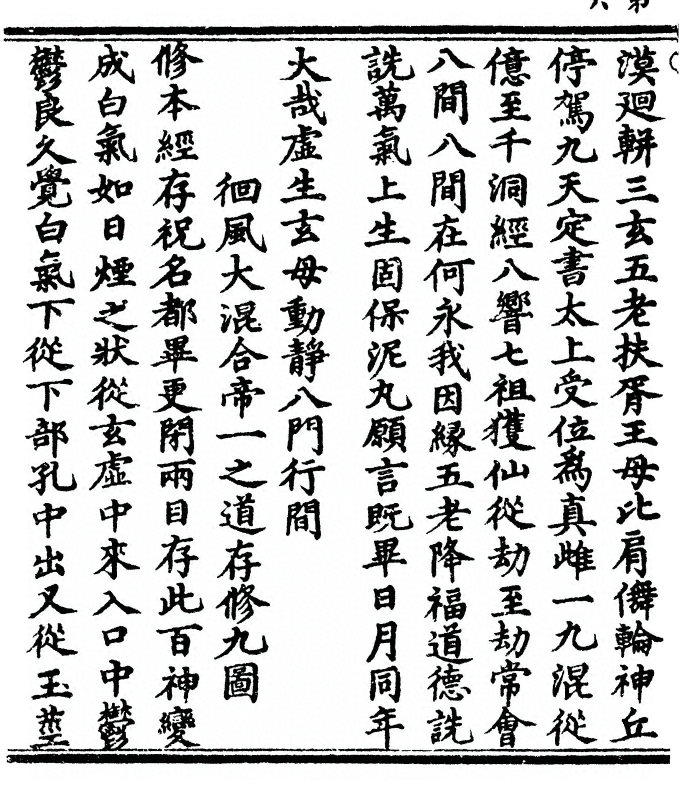 漠廻軿三玄五老扶胥王母比肩儛輪神丘
停駕九天定書太上受位為真雌一九混從
億至千洞經八響七祖獲仙從劫至劫常會
八間八間在何永我因緣五老降福道德詵
詵萬氣上生固保泥丸願言既畢日月同年
大哉虛生玄母動靜八門行間
徊風大混合帝一之道存修九圖
修本經存祝名都畢更閉兩目存此百神變
成白氣如日煙之狀從玄虛中來入口中鬱
鬱良久覺白氣下從下部孔中出又從玉莖